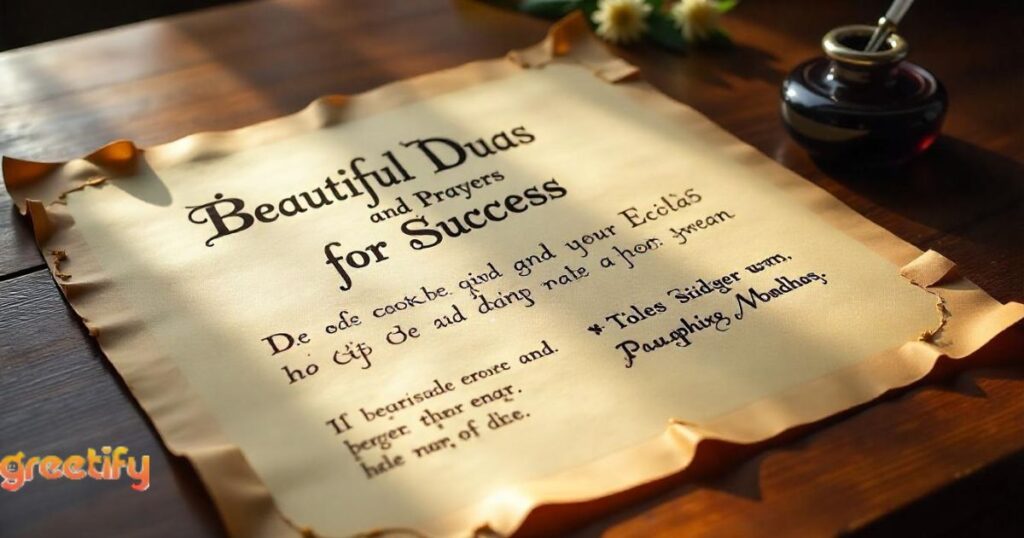 Beautiful Duas
and Prayers
for Success
De ode cook be. qivd gnd your Ecolás
ho cip de aud daing nate a pom gwean
* Toles Sidger wm.
Paugphing Mondhog.
If bearisade erore and.
berger thnr engr.
hale nar, of dke.
greetify